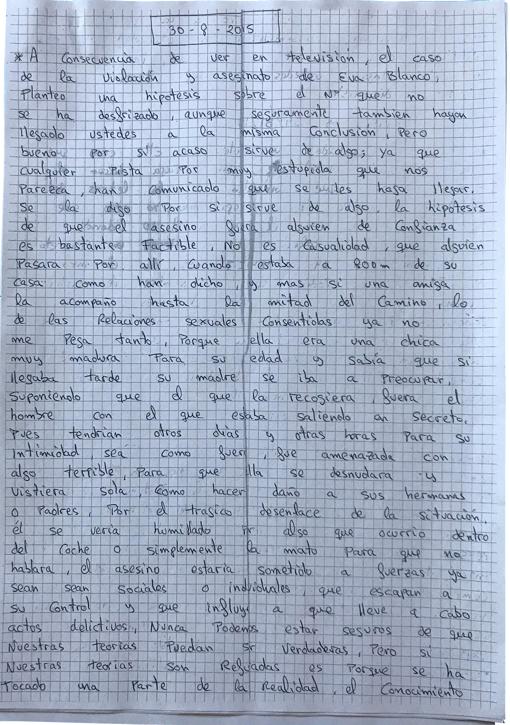 30-8-2015
* A Consecuencia de ver en television, el caso
de la violación y asesinato de Eva Blanco,
Planteo una hipotesis sobre el Nº que no
se ha descrizado, aunque seguramente tambien hayan
llegado ustedes a la misma Conclusión, Pero
bueno Por si acaso sirve de algo; ya que
cualquier Pista Por muy estupida que nos
Parezca, han Comunicado que se les haga llegar.
Se la digo Por si sirve de algo la hipotesis
de que el asesino fuera alguien de Confianza
es bastante Factible, No es Casualidad, que alguien
Pasara Por allí, Cuando estaba a 800m de su
casa como han dicho, y mas si una amiga
la acompaño hasta la mitad del Camino, lo
de las Relaciones sexuales Consentidas ya no
me Pega tanto, Porque ella era una chica
muy madura Para su edad y sabía que si
llegaba tarde su madre se iba a Preocupar.
Suponiendo que el que la recogiera, fuera el
hombre con el que estaba saliendo en Secreto.
Pues tendrian otros dias y otras horas Para su
Intimidad, sea como fuer, fue amenazada con
algo terrible, Para que ella se desnudara y
vistiera sola, Como hacer daño a sus hermanas
o Padres, Por el tragico desenlace de la situación.
él se veria humillado Por algo que ocurrio dentro
del Coche o simplemente la mato Para que no
hablara, el asesino estaria sometido a fuerzas ya
sean sean sociales o individuales, que escapan a
su Control y que influyi a que lleve a cabo
actos delictivos, Nunca Podemos estar seguros de que
Nuestras teorias Puedan sr verdaderas, Pero si
Nuestras teorias son Refutadas es Porque se ha
Tocado una Parte de la Realidad, el Conocimiento